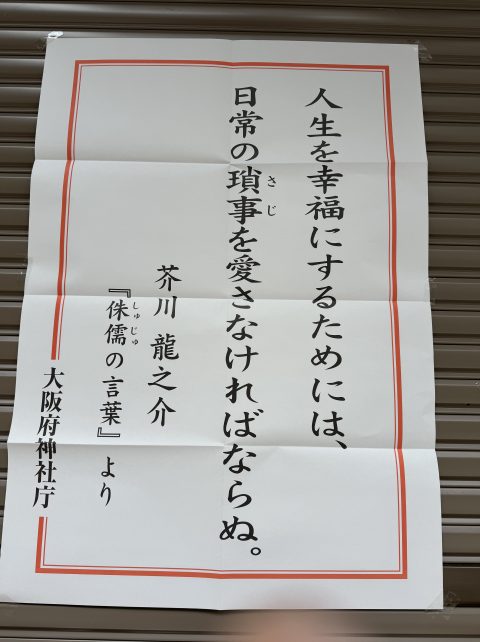 人生を幸福にするためには、
日常の瑣事を愛さなければならぬ。
さじ
芥川 龍之介
『侏儒の言葉』より
しゅじゅ
大阪府神社庁